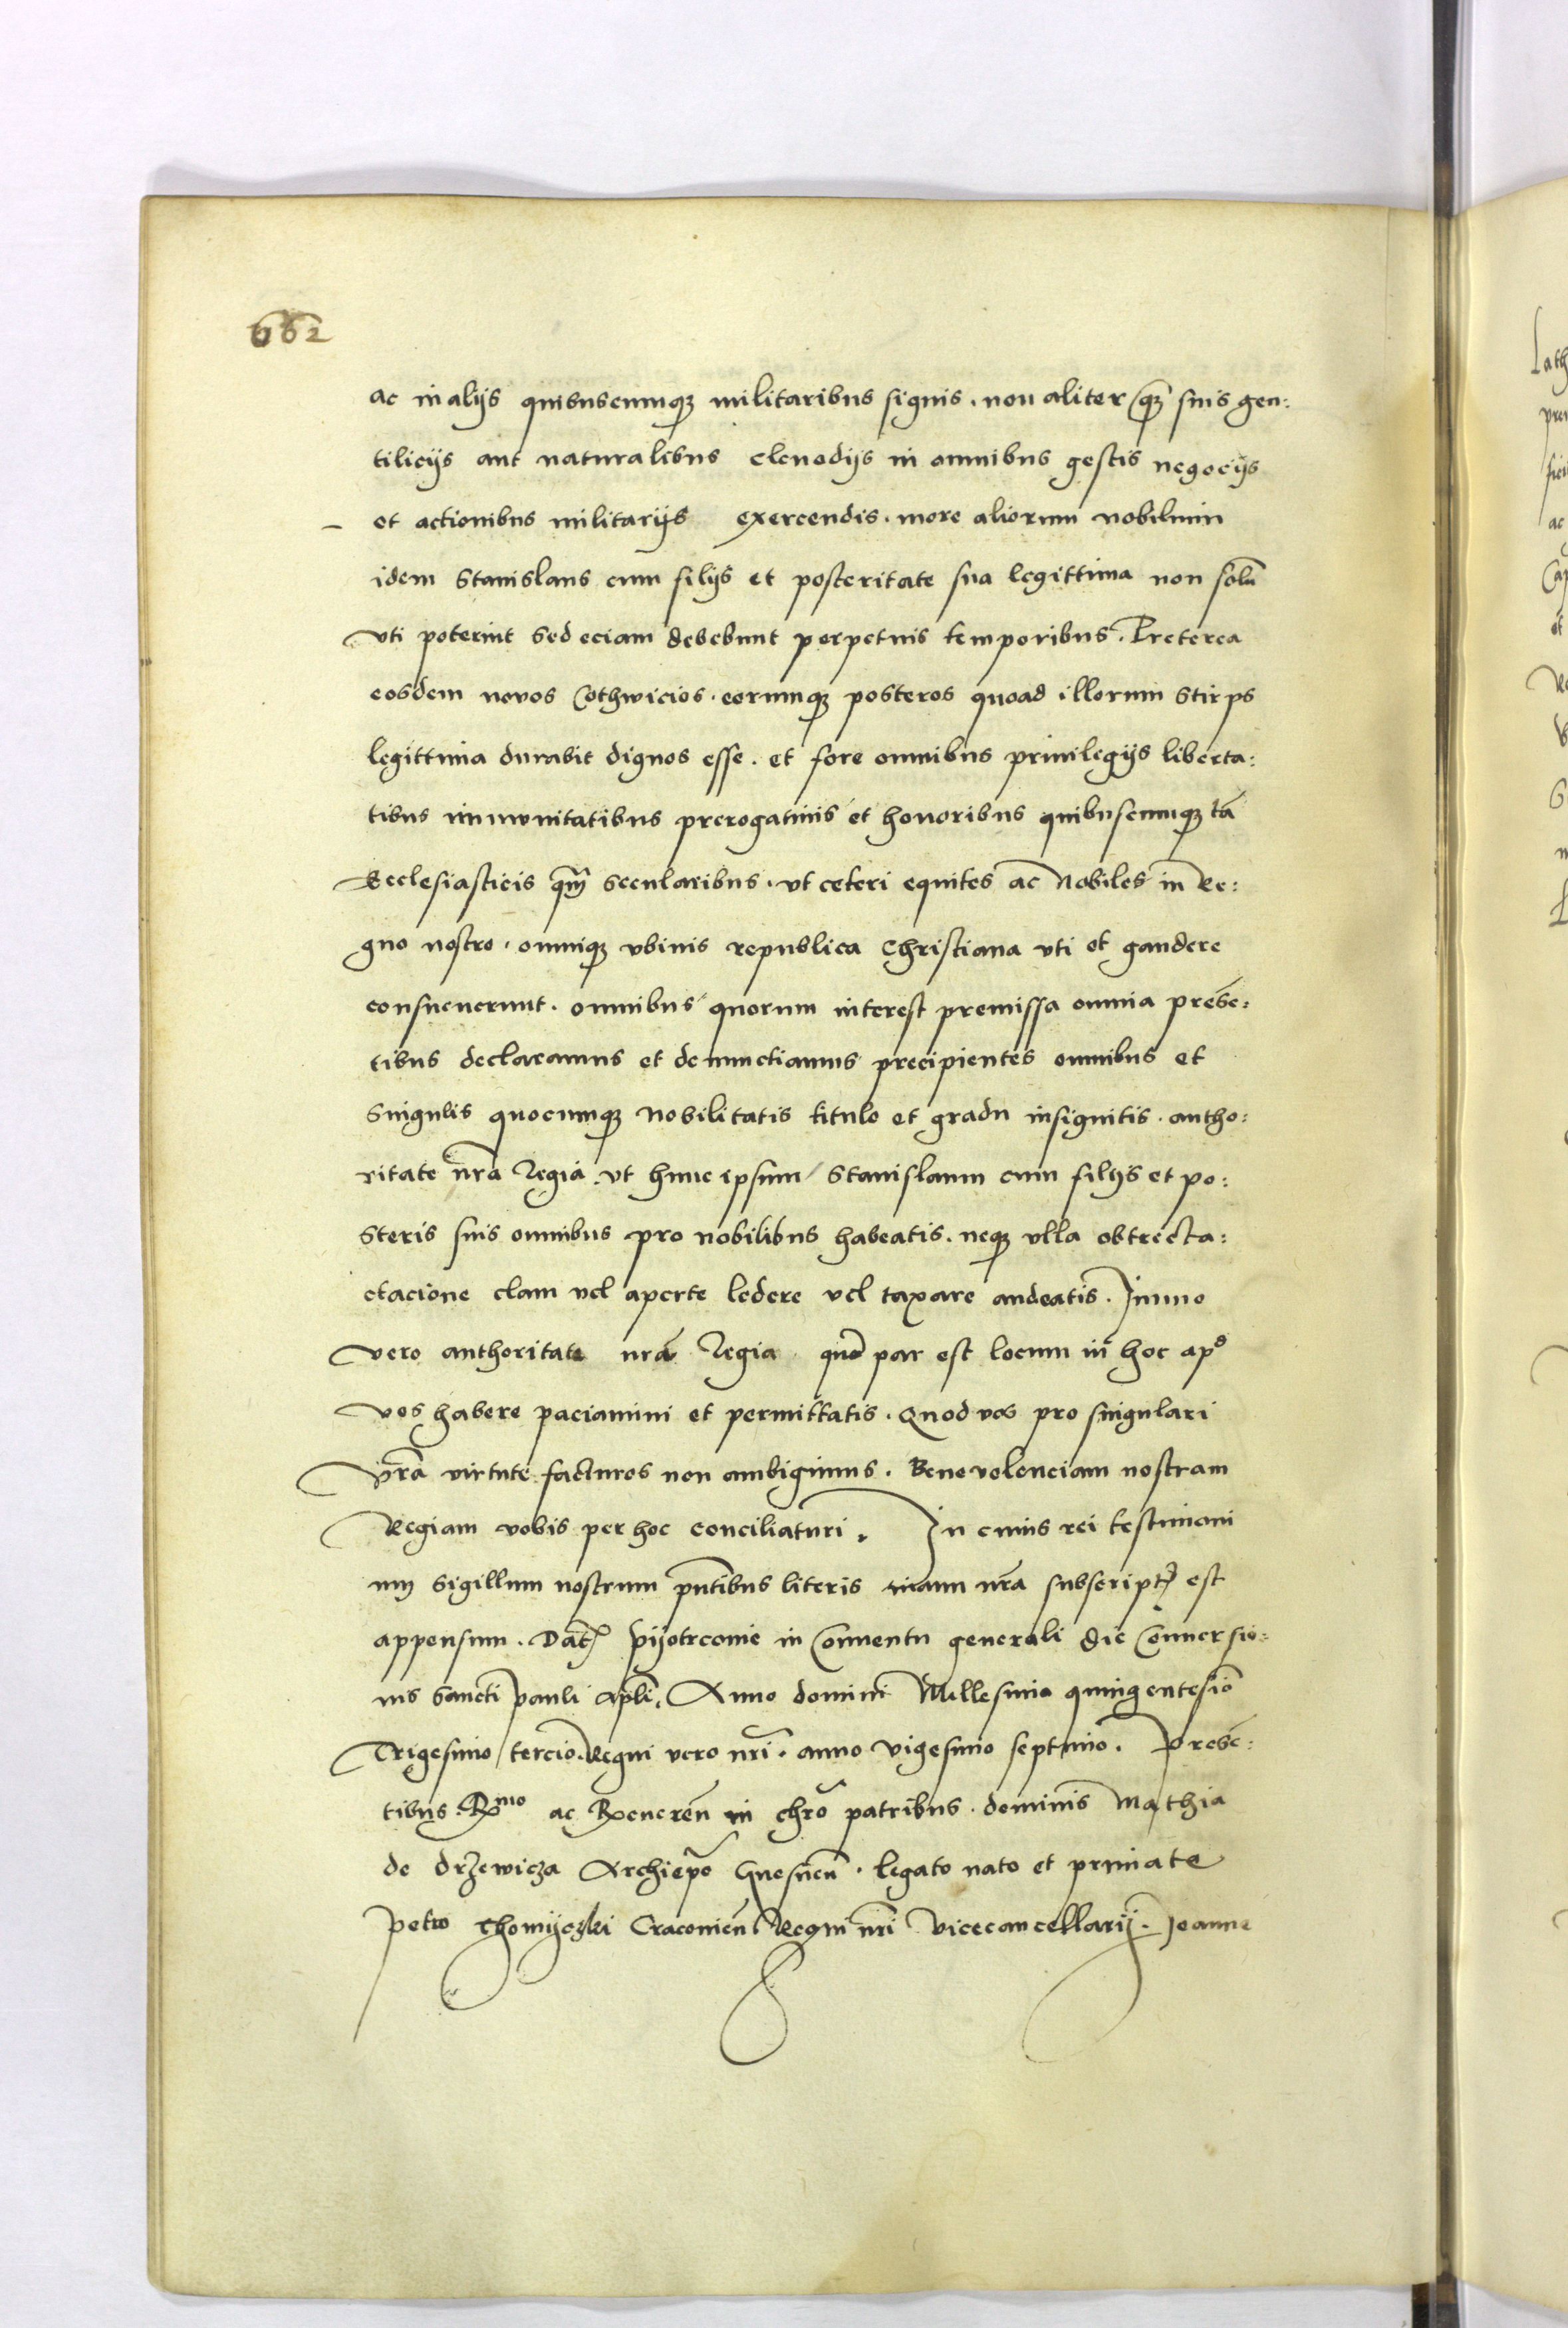 662
ac in alijs quibuscumq militaribus signis. non aliter qȝ suis gen:
tilicijs aut naturalibus clenodijs in omnibus gestis negocijs
et actionibus militarijs exercendis. more aliorum nobilium
idem Stanislaus cum filijs et posteritate sua legittima non solũ
vti poterint sed eciam debebunt perpetuis temporibus. Preterea
eosdem novos Cothwicios. eorumqȝ posteros quoad illorum stirps
legittima durabit dignos esse. et fore omnibus privilegijs liberta:
tibus immunitatibus prerogativis et honoribus quibuscumqȝ tã
Ecclesiasticis qm̃ secularibus. vt ceteri equites ac Nobiles in Re:
gno nostro. omniqȝ vbivis republica Christiana vti et gaudere
consueverunt. omnibus quorum interest premissa omnia presẽ:
tibus declaramus et denunctiamus precipientes omnibus et
Singulis quocumqȝ nobilitatis titulo et gradu insignitis. autho:
ritate nr̃a Regia. vt hunc ipsum Stanislaum cum filijs et po:
steris suis omnibus pro nobilibus habeatis. neqȝ vlla obtrecta:
ctacione clam vel aperte ledere vel taxare audeatis. Immo
vero authoritate nr̃a Regia quẽ par est locum in hoc apd
vos habere paciamini et permittatis. Quod vos pro singulari
vr̃a virtute facturos non ambigimus. Benevolenciam nostram
Regiam vobis per hoc conciliaturi. In cuius rei testimoni
um sigillum nostrum pñtibus literis manu nr̃a subscript est
appensum. Dat Pijotrcovie in Conventu generali die Conversio:
nis Sancti Pauli apl̃i. Anno domini Millesimo quingentesiõ
Trigesimo tercio. Regni vero nr̃i. anno vigesimo septimo. Presẽ:
tibus. Rmo ac Reverẽn in chrõ patribus. dominis Mathia
de drzewicza Archiepõ Gnesneñ. legato nato et primate
Petro Thomijczki Cracovieñ Regni nr̃i Vicecancellarij. Joanne